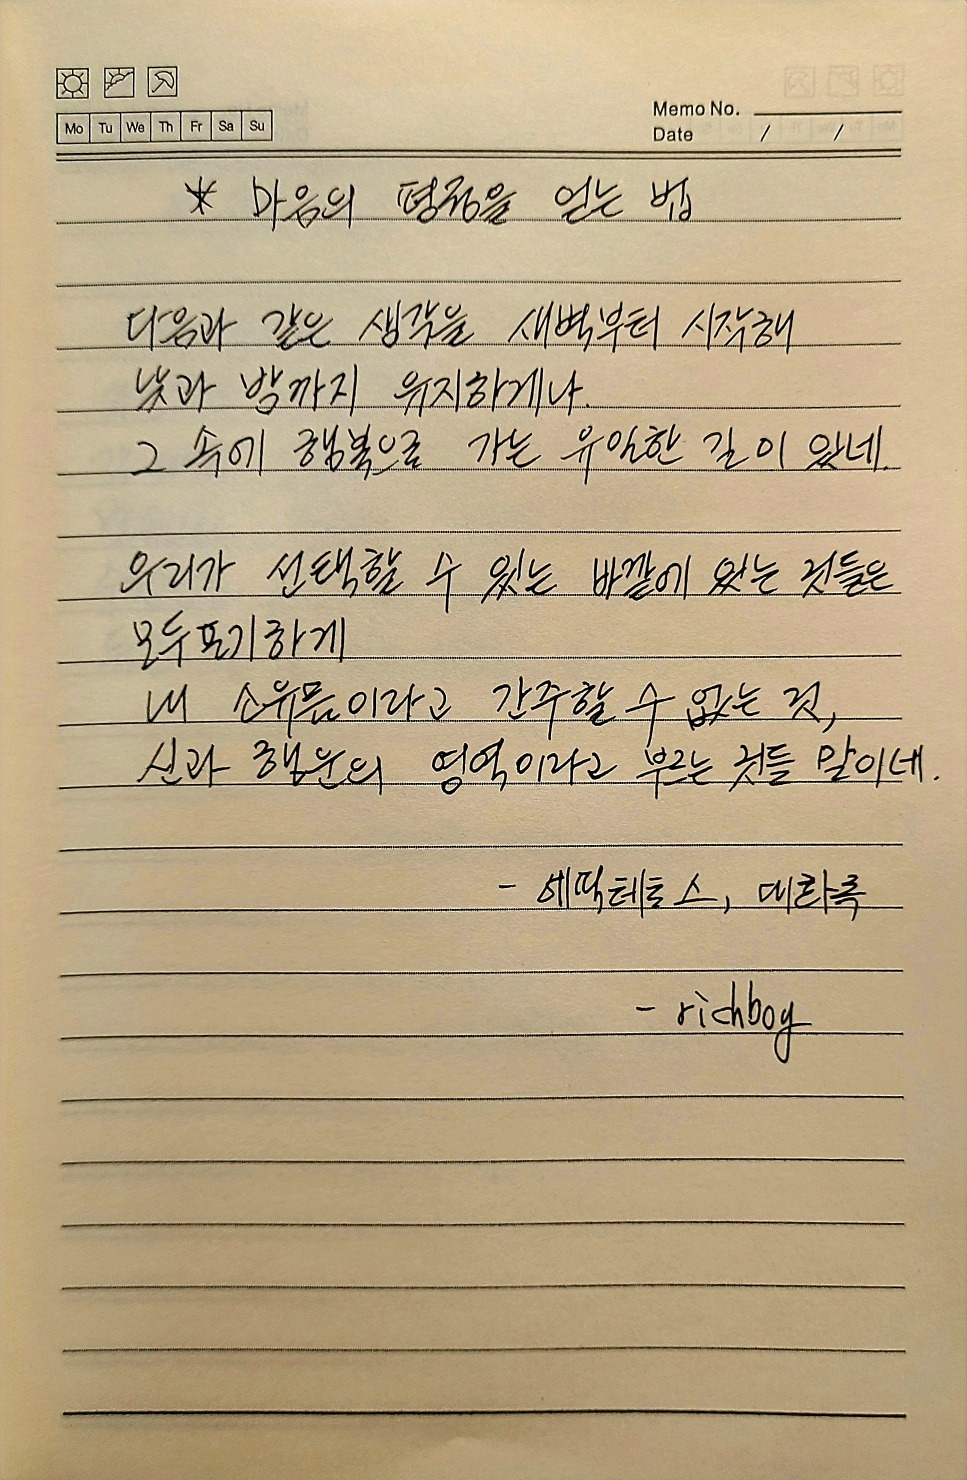 Mo Tu We Th Fr Sa Su
Memo No.
Date / /
* 마음의 평정을 얻는 법
다음과 같은 생각을 새벽부터 시작해
낮과 밤까지 유지하게나.
그 속에 행복으로 가는 유일한 길이 있네.
우리가 선택할 수 있는 바깥에 있는 것들은
모두포기하게
내 소유물이라고 간주할 수 없는 것,
신과 행운의 영역이라고 부르는 것들 말이네.
- 에픽테토스, 대화록
- richboy